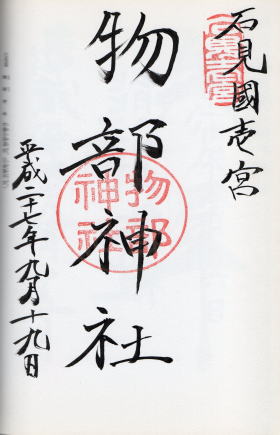 石見國壱宮
物部神社
物部
神社
平成二十七年九月十九日